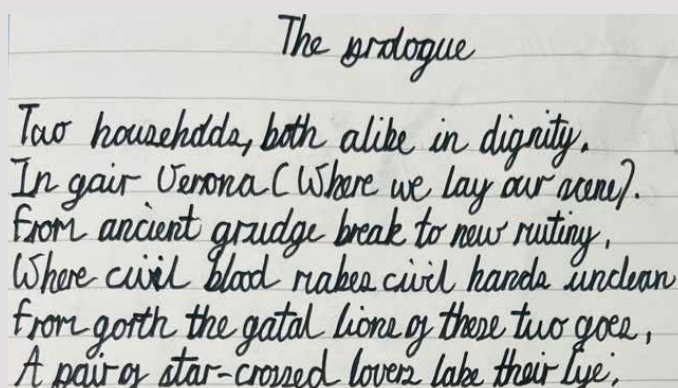 The prologue
Two households, both alike in dignity.
In gair Verona (Where we lay our scene).
From ancient grudge break to new mutiny,
Where civil blood makes civil hands unclean
From gorth the gatal lions of these two goes,
A pair of star-crossed lovers take their lye,